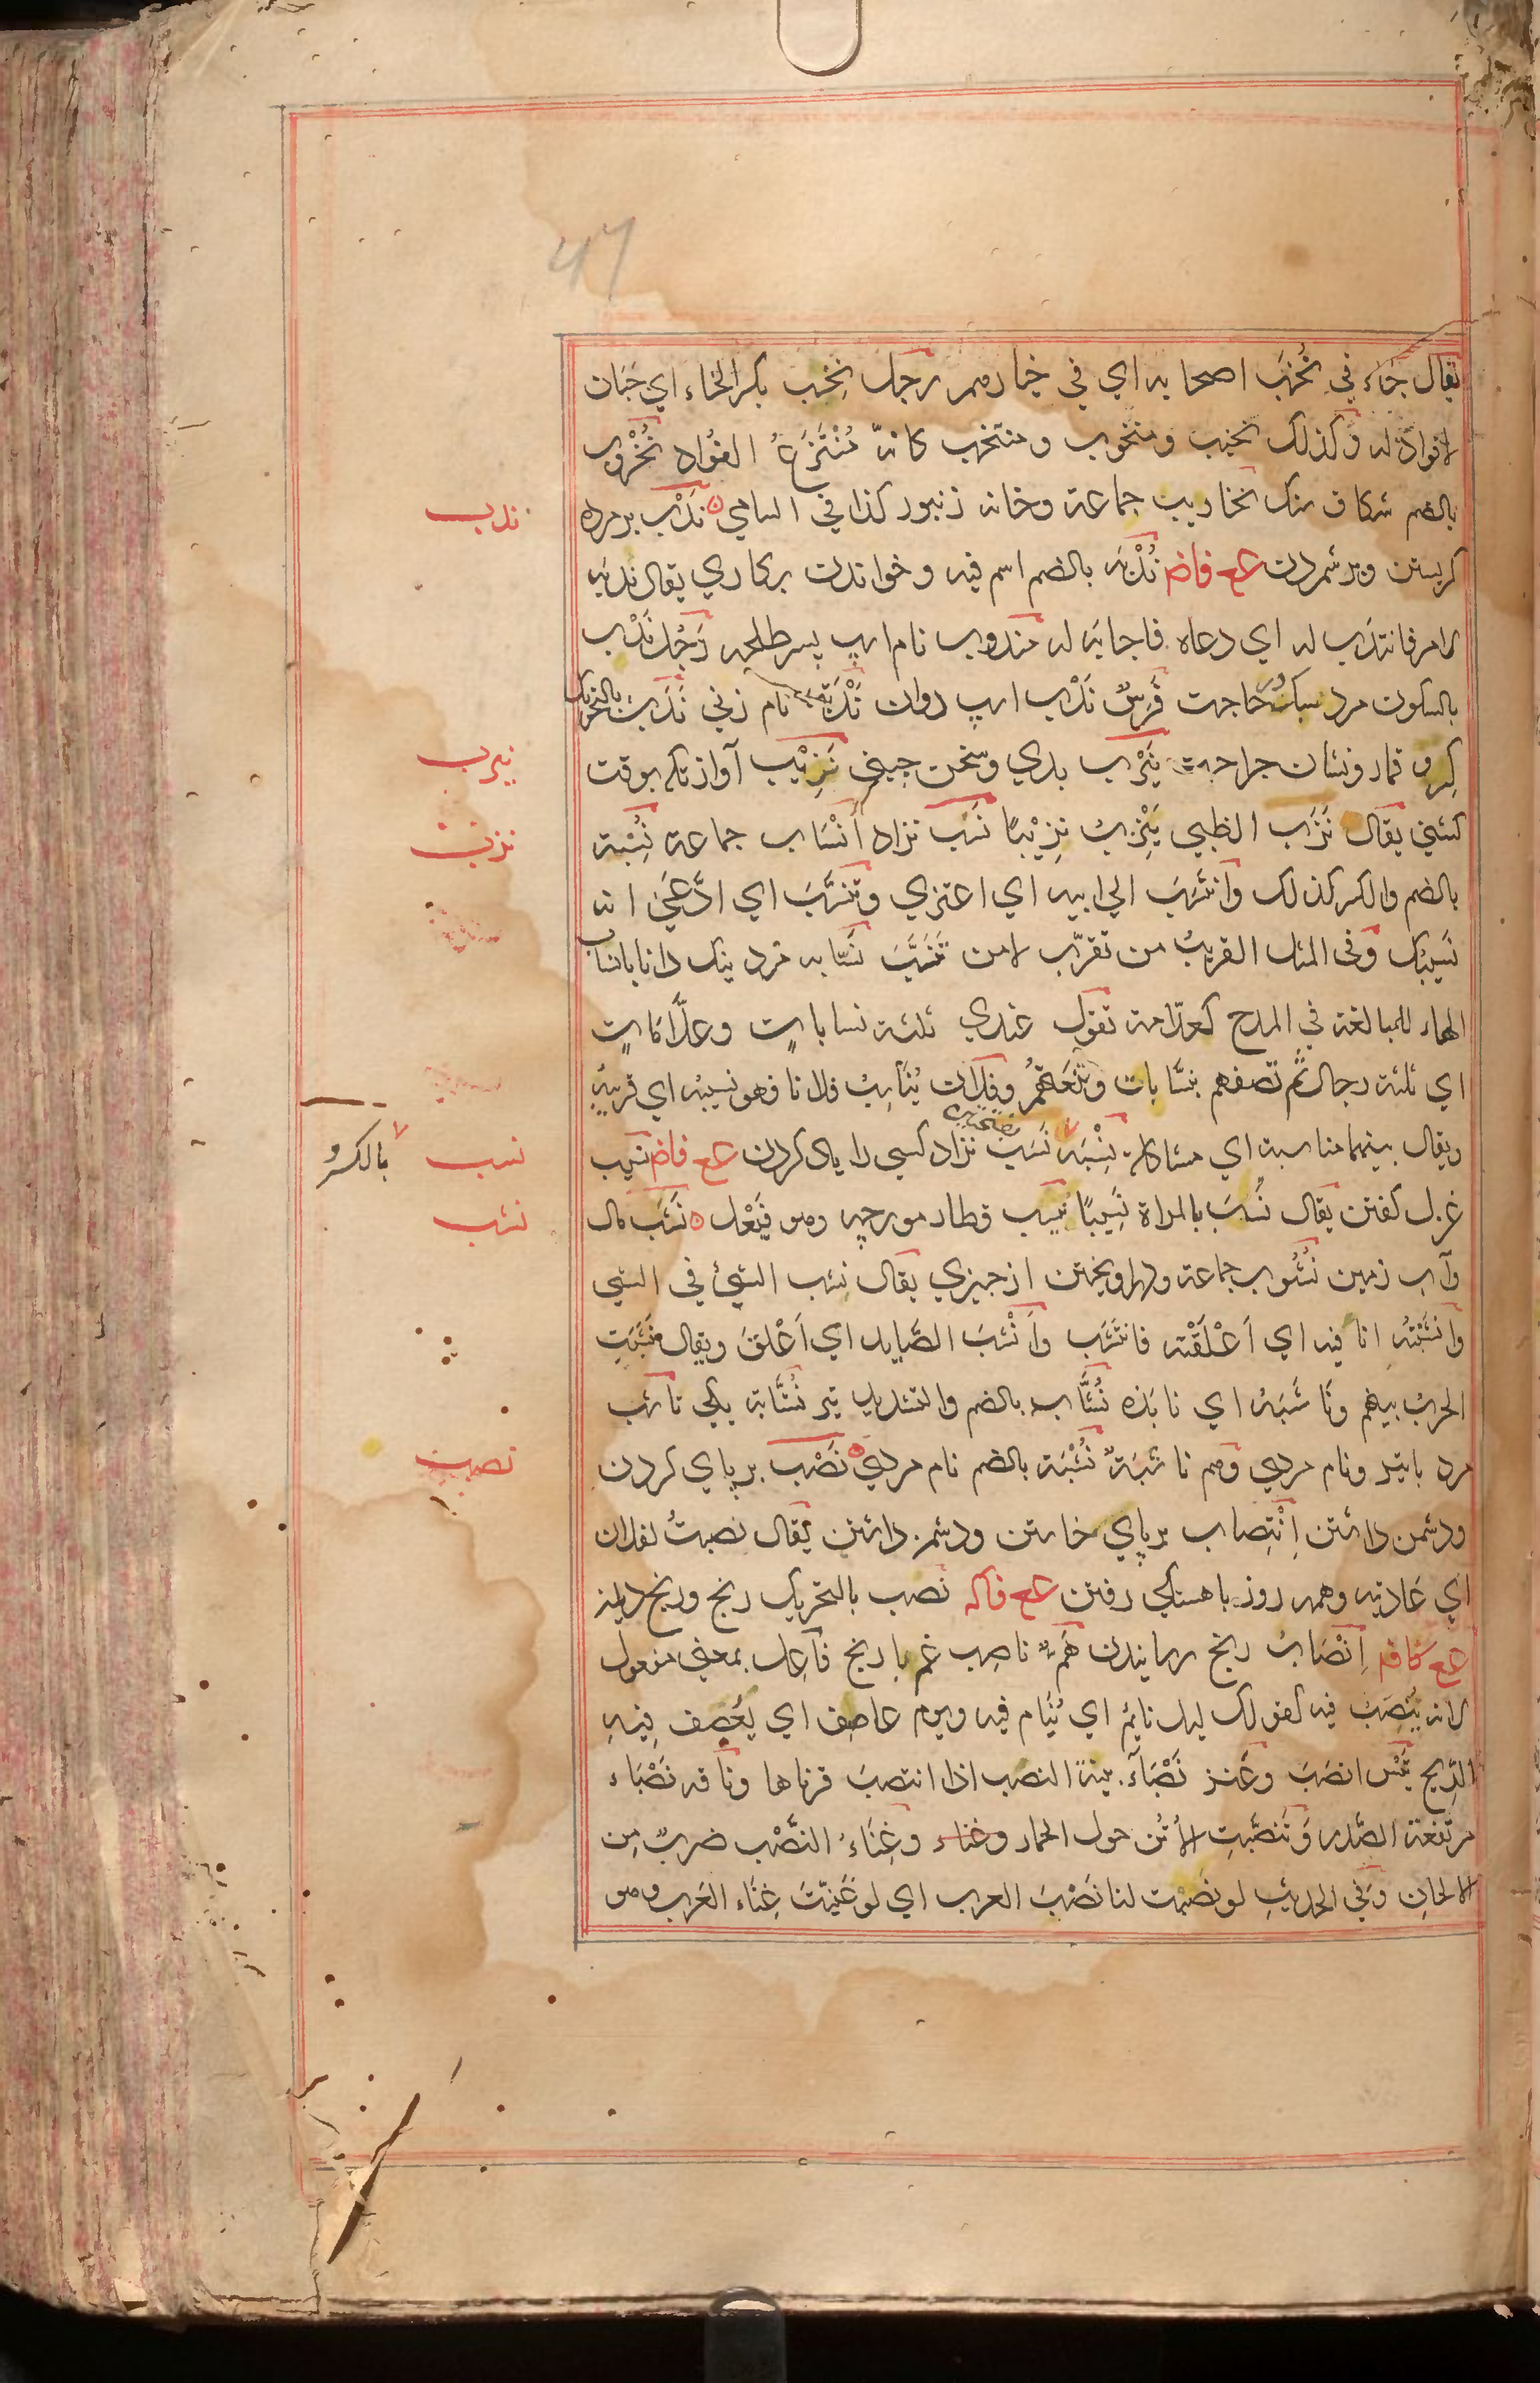 يقال جاء في نُخَب اصحابه اي في خيارهم رجل نخِب بكسر الخاء اي جَبَان
لا فواد له وكذلك نخيب ومنخوب ومنتخب كانه مُنْتَزَعُ الفُواد نُخْرُوب
بالضم شكاف سنك نخاريب جماعة وخانه زنبور كذا في السامي نَدْب بر مرده
كريستن وبر شمردن ع فاضم نُدْبَه بالضم اسم فيه وخواندن بركاري يقال نَدبَه
لامر فانتدَب له اي دعاه فاجابَه له مندوب نام اسپ پسر طلحه رَجُل نَدْب
بالسكون مرد سبك در حاجت فَرَسٌ نَدْب اسپ روان نَدْبَة نام زني نَدَب بالتحريك
كِرو قمار ونشان جراحت نَيْرَب بدي وسخن چيني نَزِيْب آواز تكه بوقت
كشني يقال نَزَب الظبي يَنْزِبُ نَزِيْبًا نَسَب نژاد اَنْسَاب جماعة نُسْبَة
بالضم والكسر كذلك وانتَسَبَ الي ابيه اي اعتزي وتنَسَّبَ اي ادَّعَيٰ انه
نَسِيبُك وفي المثل القريبُ من تقرّب لا من تَنَسَّبَ نَسّابه مرد نيك دانا بانساب
الهاء للمبالغة في المدح كعلّامة تقول عندي ثلثة نسابات وعلَّامَات
اي ثلثة رجال ثم تصفهم بنسّابات وفلان يُنَاسِبُ فلانا فهو نسيبُه اي قريبُه
ويقال بينهما مناسبة اي مشاكلة نِسْبَة نَسَب نژاد كسي را ياد كردن ع فاضم نسيب
غزل كفتن يقال نَسَبَ بالمراة نَسِيبًا نَيْسَب قطار مورچه وهو فَيْعَل نَشَب مال
وآب زمين نُشُوب جماعة ودراويختن از چيزي يقال نشب الشئ في الشي
وانْشَبْتُه انا فيه اي اَعْلَقْتُه فانتَشَب واَنْشَبَ الصَّايد اي اَعْلَقَ ويقال نَشَبَتِ
الحربُ بينهم ونَاشَبَهُ اي نابَذه نُشَّاب بالضم والتشديد تير نُشَّابَة يكي ناشب
مرد باتير ونام مردي وهم ناشَبَةٌ نُشْبَة بالضم نام مردي نَصْب برپاي كردن
ودشمن داشتن اِنْتِصاب برپاي خاستن ودشمن داشتن يقال نصبتُ لفلان
اي عَاديته وهمه روز باهستكي رفتن ع فاكه نصب بالتحريك رنج ورنج ديدن
ع كافه اِنْصَابُ رنج رسانيدن هَمٌّ ناصِب غم با رنج فاعِل بمعني مفعول
لانه يُنْصَبُ فيه كقولك ليل نايمٌ اي يُنَام فيه ويوم عاصِف اي يَعْصِف فِيْهِ
الرِّيح تَيْس انصَبَ وعَنز نَصْبَآء بينة النصَب اذا انتصبَ قرناها وناقه نصْبَاء
مرتفعة الصَّدر وتَنَصَّبَتِ الاُتُن حول الحمار وغناء وغِنَاءُ النَّصْب ضربٌ مِن
الالحانِ وفي الحديثِ لو نصَبْت لنا نَصْبَ العرب اي لو غَنّيتَ غِنَاء العَرب وهو
ندب
نيرب
نزب
نسب
بالكسر و
نشب
نصب